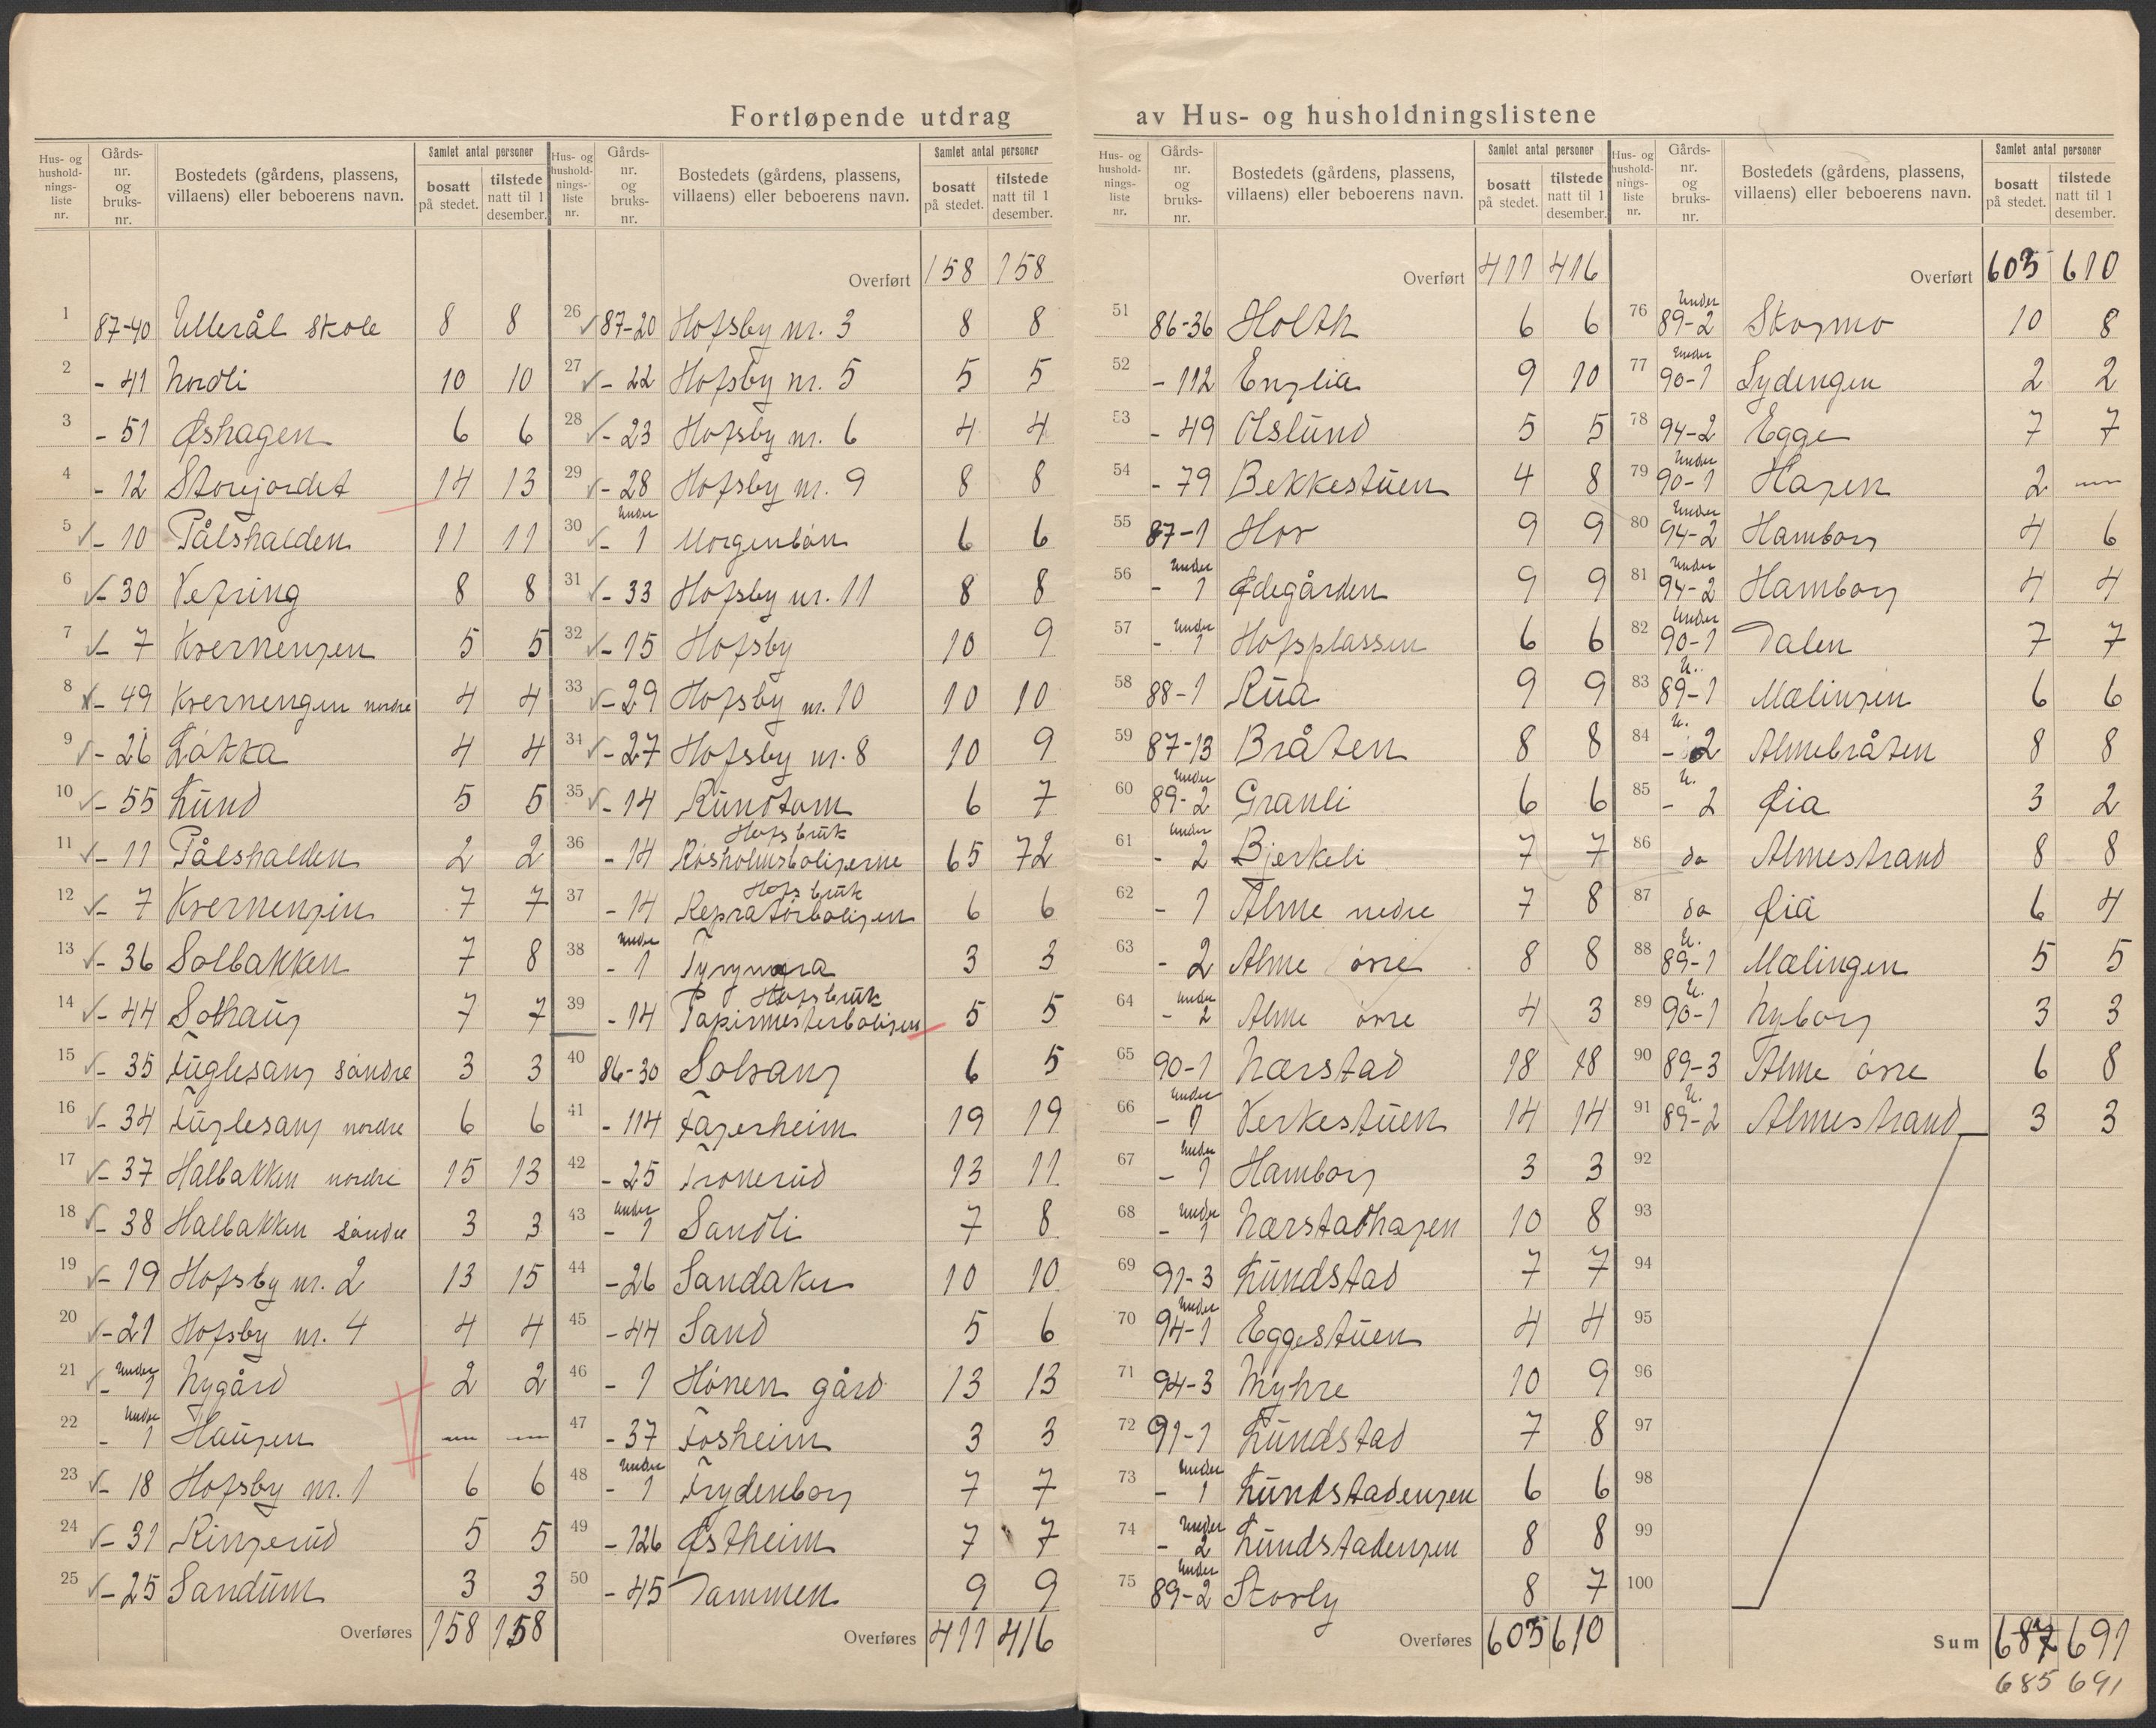 Fortløpende utdrag av Hus- og husholdningslistene
Hus- og hushold-nings-liste nr. Gårds-nr. og bruks-nr. Bostedets (gårdens, plassens, villaens) eller beboerens navn. Samlet antal personer bosatt på stedet. tilstede natt til 1 desember.
1 87-40 Ullerål skole 8 8
2 - 41 Nordli 10 10
3 - 51 Øshagen 6 6
4 - 12 Storejordet 14 13
5 - 10 Pålshalden 11 11
6 - 30 Vefring 8 8
7 - 7 Kvernengen 5 5
8 - 49 Kvernengen nordre 4 4
9 - 26 Løkka 4 4
10 - 55 Lund 5 5
11 - 11 Pålshalden 2 2
12 - 7 Kvernengen 7 7
13 - 36 Solbakken 7 8
14 - 44 Solhaug 7 7
15 - 35 Fuglesang søndre 3 3
16 - 34 Fuglesang nordre 6 6
17 - 37 Halbakken nordre 15 13
18 - 38 Halbakken søndre 3 3
19 - 19 Hofsby nr. 2 13 15
20 - 21 Hofsby nr. 4 4 4
21 - under 1 Nygård 2 2
22 - under 1 Haugen — —
23 - 18 Hofsby nr. 1 6 6
24 - 31 Ringerud 5 5
25 - 25 Sandum 3 3
Overføres 158 158
Hus- og hushold-nings-liste nr. Gårds-nr. og bruks-nr. Bostedets (gårdens, plassens, villaens) eller beboerens navn. Samlet antal personer bosatt på stedet. tilstede natt til 1 desember.
Overført 158 158
26 87-20 Hofsby nr. 3 8 8
27 - 22 Hofsby nr. 5 5 5
28 - 23 Hofsby nr. 6 4 4
29 - 28 Hofsby nr. 9 8 8
30 - under 1 Morgenbøn 6 6
31 - 33 Hofsby nr. 11 8 8
32 - 15 Hofsby 10 9
33 - 29 Hofsby nr. 10 10 10
34 - 27 Hofsby nr. 8 10 9
35 - 14 Rundtom 6 7
36 - 14 Hofs bruk Røsholmsboligerne 65 72
37 - 14 Hofs bruk Repratørboligen 6 6
38 - under 1 Tyrymyra 3 3
39 - 14 Hofs bruk Papirmesterboligen 5 5
40 86-30 Solvang 6 5
41 - 114 Fagerheim 19 19
42 - 25 Tronerud 13 11
43 - under 1 Sandli 7 8
44 - 26 Sandaker 10 10
45 - 44 Sand 5 6
46 - 1 Hønen gård 13 13
47 - 37 Fosheim 3 3
48 - under 1 Frydenborg 7 7
49 - 126 Østheim 7 7
50 - 45 Dammen 9 9
Overføres 411 416
Hus- og hushold-nings-liste nr. Gårds-nr. og bruks-nr. Bostedets (gårdens, plassens, villaens) eller beboerens navn. Samlet antal personer bosatt på stedet. tilstede natt til 1 desember.
Overført 411 416
51 86-36 Holth 6 6
52 - 112 Englia 9 10
53 - 49 Oslund 5 5
54 - 79 Bekkestuen 4 8
55 87-1 Hov 9 9
56 - under 1 Ødegården 9 9
57 - under 1 Hofsplassen 6 6
58 88-1 Rua 9 9
59 87-13 Bråten 8 8
60 under 89-2 Granli 6 6
61 - under 2 Bjerkeli 7 7
62 - 1 Alme nedre 7 8
63 - 2 Alme øvre 8 8
64 - under 2 Alme øvre 4 3
65 90-1 Nærstad 18 18
66 - under 1 Verkestuen 14 14
67 - under 1 Hamborg 3 3
68 - under 1 Nærstadhagen 10 8
69 91-3 Lundstad 7 7
70 under 94-1 Eggestuen 4 4
71 94-3 Myhre 10 9
72 91-1 Lundstad 7 8
73 - under 1 Lundstadengen 6 6
74 - under 2 Lundstadengen 8 8
75 under 89-2 Storly 8 7
Overføres 603 610
Hus- og hushold-nings-liste nr. Gårds-nr. og bruks-nr. Bostedets (gårdens, plassens, villaens) eller beboerens navn. Samlet antal personer bosatt på stedet. tilstede natt til 1 desember.
Overført 603 610
76 under 89-2 Skogmo 10 8
77 under 90-1 Lydengen 2 2
78 94-2 Egge 7 7
79 under 90-1 Hagen 2 —
80 under 94-2 Hamborg 4 6
81 under 94-2 Hamborg 4 4
82 under 90-1 Dalen 7 7
83 u. 89-1 Mælingen 6 6
84 u. - 2 Almebråten 8 8
85 u. - 2 Øia 3 2
86 do Almestrand 8 8
87 do Øia 6 4
88 u. 89-1 Mælingen 5 5
89 u. 90-1 Nyborg 3 3
90 89-3 Alme øvre 6 8
91 u. 89-2 Almestrand 3 3
92
93
94
95
96
97
98
99
100
Sum 687 691
685 691